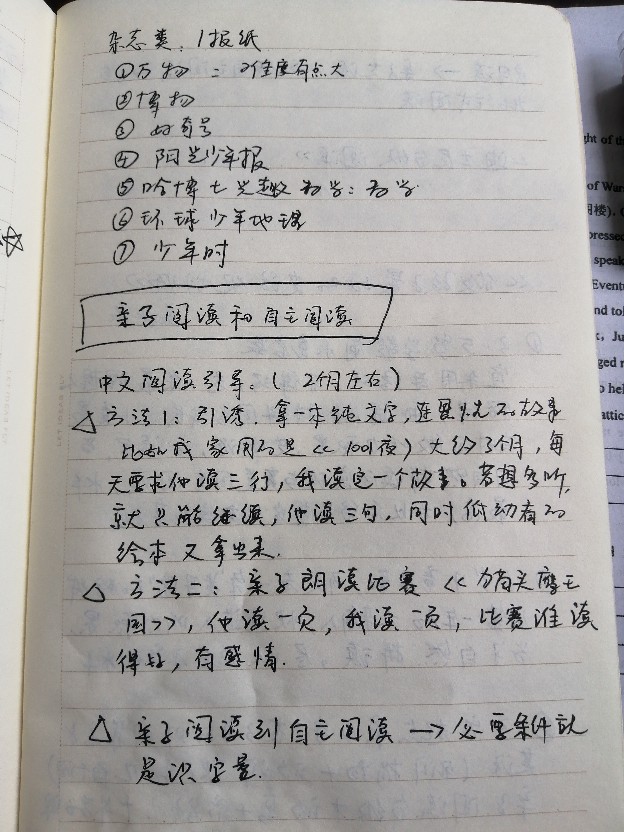 杂志类、/报纸
①万物：难度有点大
②博物
③好奇号
④阳光少年报
⑤哈博士兴趣数学：数学
⑥环球少年地理
⑦少年时
亲子阅读和自主阅读
中文阅读引导：(2个月左右)
△方法1：引诱.拿一本纯文字,连贯性的故事
比如我家用的是《1001夜)大约3个月,每
天要求他读三行,我读完一个故事。若想多听,
就只能继续,他读三句,同时低幼有的
绘本又拿出来.
△方法二：亲子朗读比赛《
国》,他读一页,我读一页,比赛谁读
得好,有感情.
△亲子阅读到自主阅读→必要条件就
是识字量.
ght of th
of War
pressed
speak
Eventu
nd tol
, Ju
ged n
o hel
attic